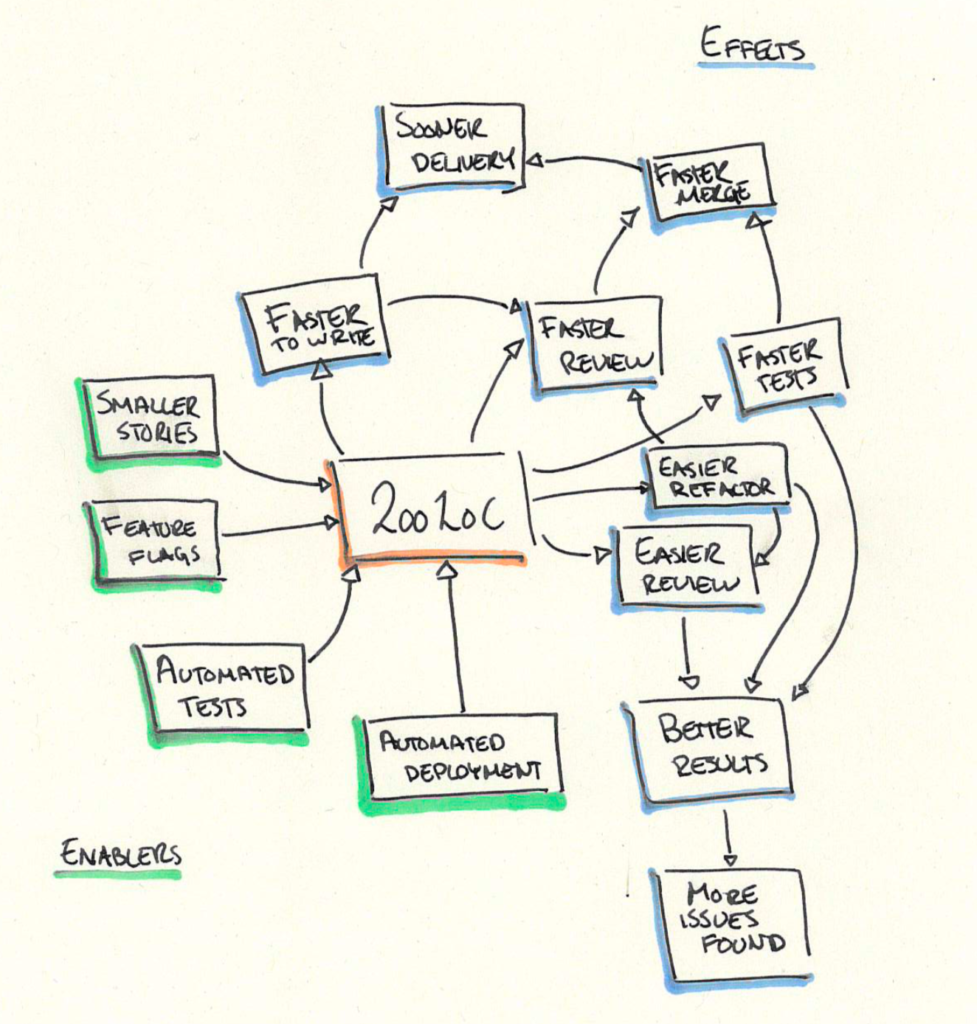 EFFECTS
SOONER
DELIVERY
FASTER
MERGE
FASTER
TO WRITE
FASTER
REVIEW
FASTER
TESTS
SMALLER
STORIES
200 LOC
EASIER
REFACTOR
FEATURE
FLAGS
EASIER
REVIEW
AUTOMATED
TESTS
AUTOMATED
DEPLOYMENT
BETTER
RESULTS
ENABLERS
MORE
ISSUES
FOUND